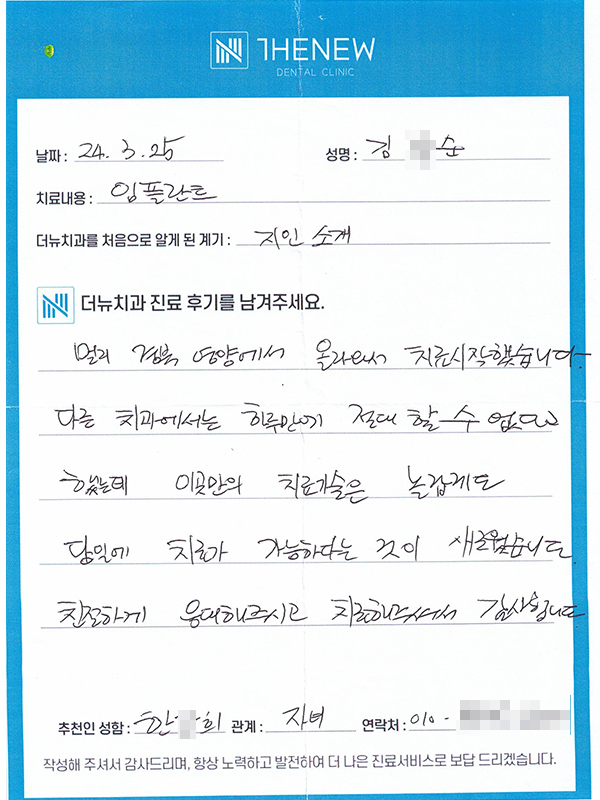 THENEW
DENTAL CLINIC
날짜 : 24. 3. 25 성명 : 김 순
치료내용 : 임플란트
더뉴치과를 처음으로 알게 된 계기 : 지인 소개
더뉴치과 진료 후기를 남겨주세요.
멀리 경북 영양에서 올라와서 치료시작했습니다.
다른 치과에서는 하루만에 절대 할 수 없다고
했는데 이곳만의 치료기술은 놀랍게도
당일에 치료가 가능하다는 것이 새로웠습니다.
친절하게 응대해주시고 치료해주셔서 감사합니다
추천인 성함 : 한 희 관계 : 자녀 연락처 : 010 -
작성해 주셔서 감사드리며, 항상 노력하고 발전하여 더 나은 진료서비스로 보답 드리겠습니다.